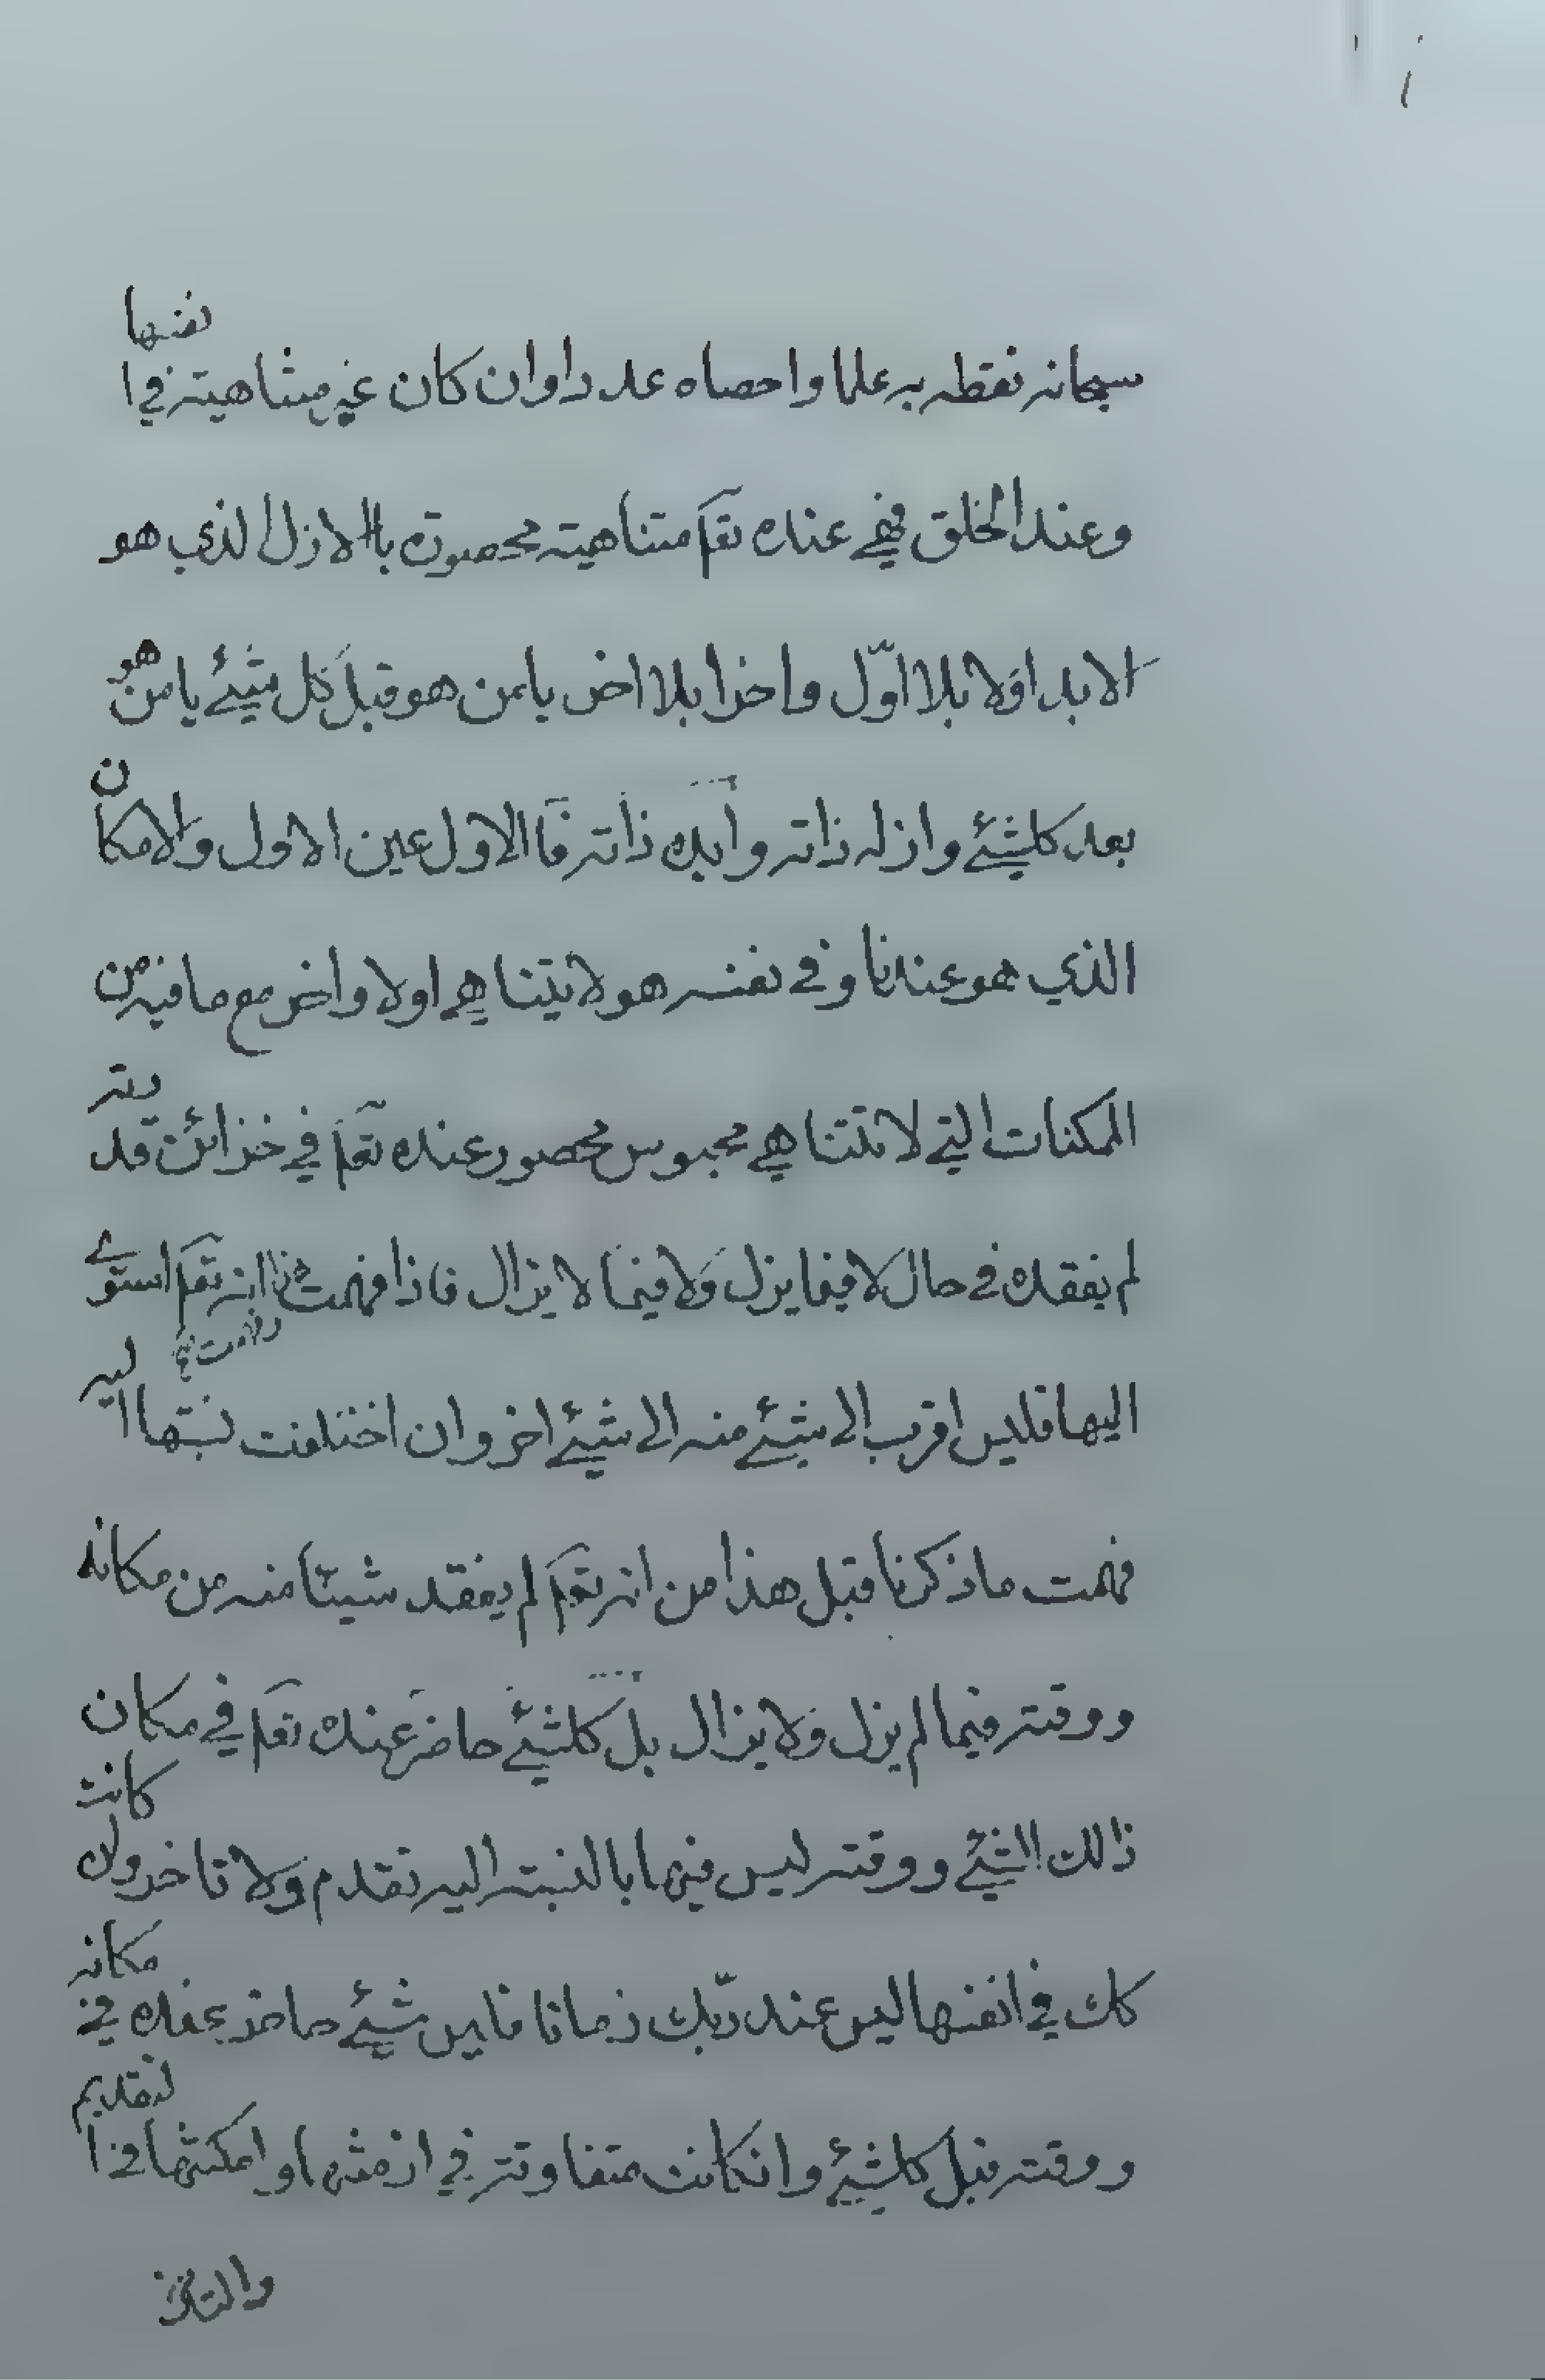 سبحانه نقطه به علما واحصاه عددا وان كان غير متناهيته في انفسها
وعند الخلق فهي عنده تعم متناهيته محصورة باالازل الذي هو
الابد اولا بلا اوّل واخرا بلا اخر يا من هو قبل كل شيئ يا من هو
بعد كلشيئ وازله ذاته وابده ذاته فاالاول عين الاول والامكان
الذي هو عندنا وفي نفسه هو لا يتناهي اولا واخر مع ما فيه من
الممكنات التي لا تتناهي محبوس محصور عنده تعم في خزائن قدرته
لم يفقده في حال لا فيما يزل ولا فيما لا يزال فاذا فهمت هذا انه تعم استوي
اليها فليس اقرب الي شيئ منه الي شيئ اخر وان اختلفت نسبتها اليه
فهمت ما ذكرنا قبل هذا من انه تعم لم يفقد شيئا منه من مكانه
ووقته فيما لم يزل ولا يزال بل كلشيئ حاضر عنده تعم في مكان
ذالك الشيئ ووقته ليس فيها بالنسبته اليه تقدم ولا تاخر وان كانت
كك في انفسها ليس عند ربّك زمانا فليس شيئ حاضر عنده في مكانه
ووقته قبل كلشيئ وانكانت متفاوته في ازمنتها وامكنتها في التقديم
والتاخر